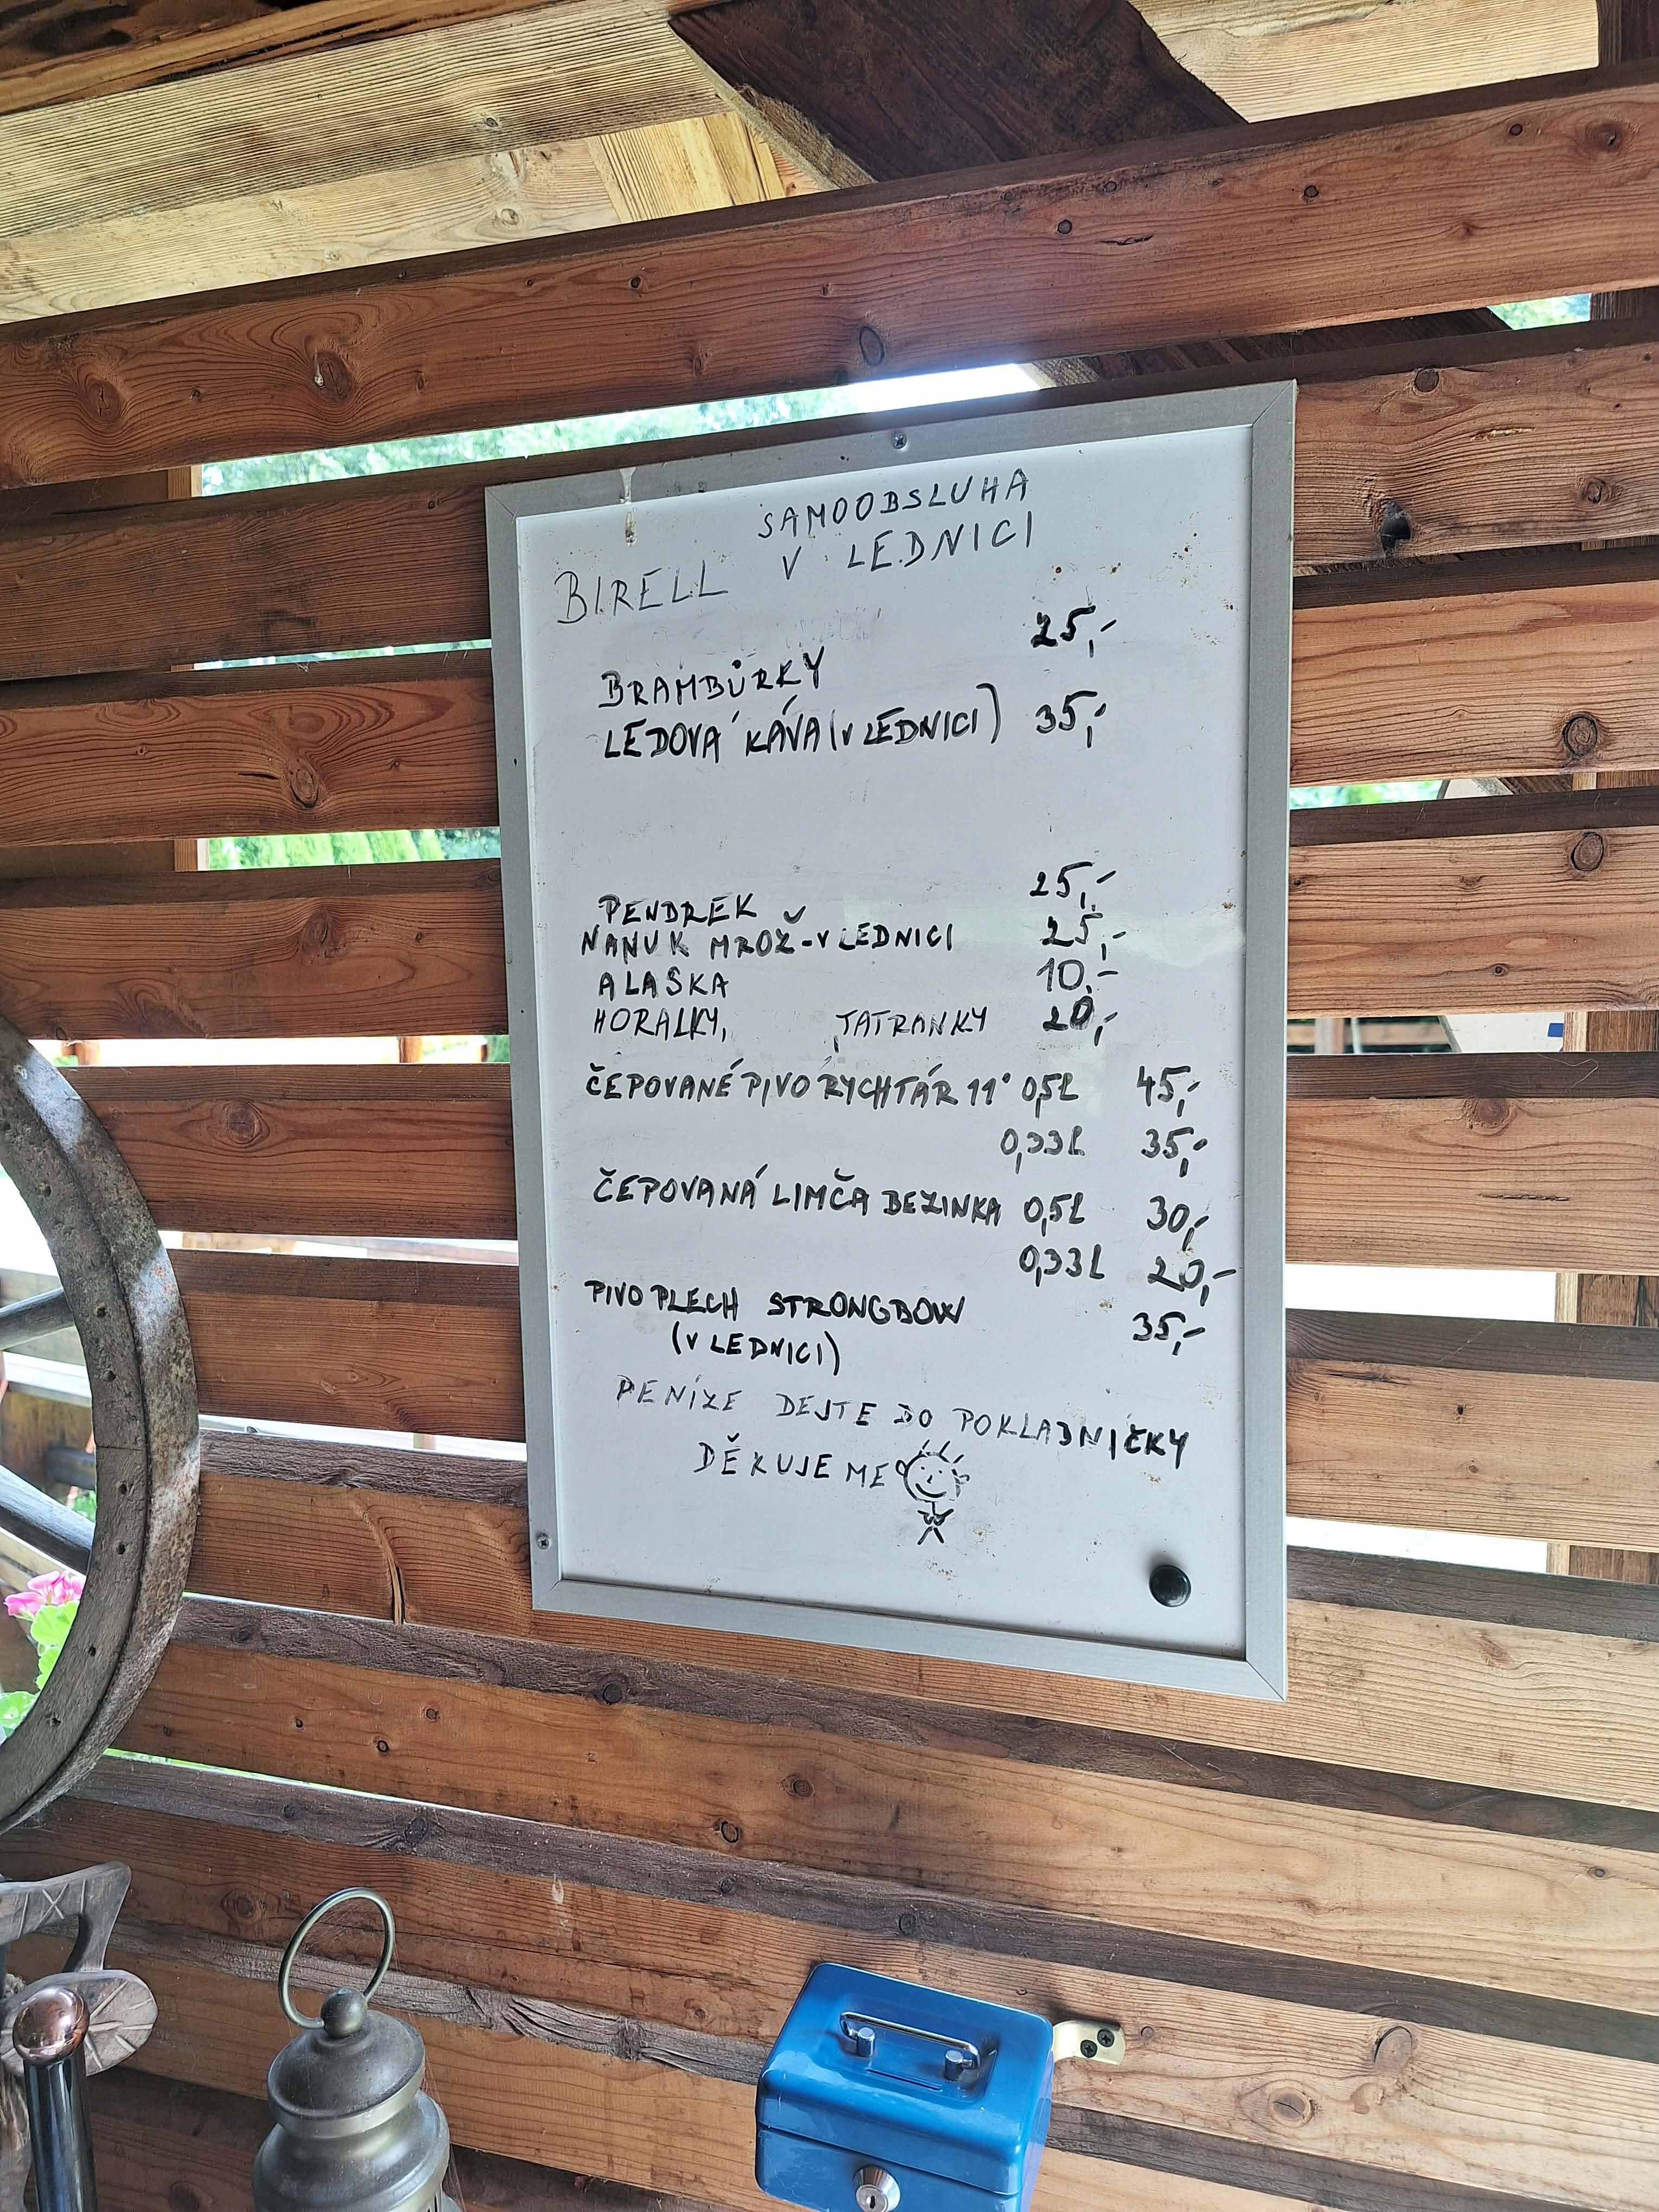 SAMOOBSLUHA
V LEDNICI
BIRELL
25,-
BRAMBŮRKY
LEDOVÁ KÁVA (V LEDNICI) 35,-
PENDREK 25,-
NANUK MROŽ - V LEDNICI 25,-
ALASKA 10,-
HORALKY, TATRANKY 20,-
ČEPOVANÉ PIVO RYCHTÁR 11° 0,5l 45,-
0,33l 35,-
ČEPOVANÁ LIMČA BEZINKA 0,5l 30,-
0,33l 20,-
PIVO PLECH STRONGBOW 35,-
(V LEDNICI)
PENÍZE DEJTE DO POKLADNIČKY
DĚKUJEME